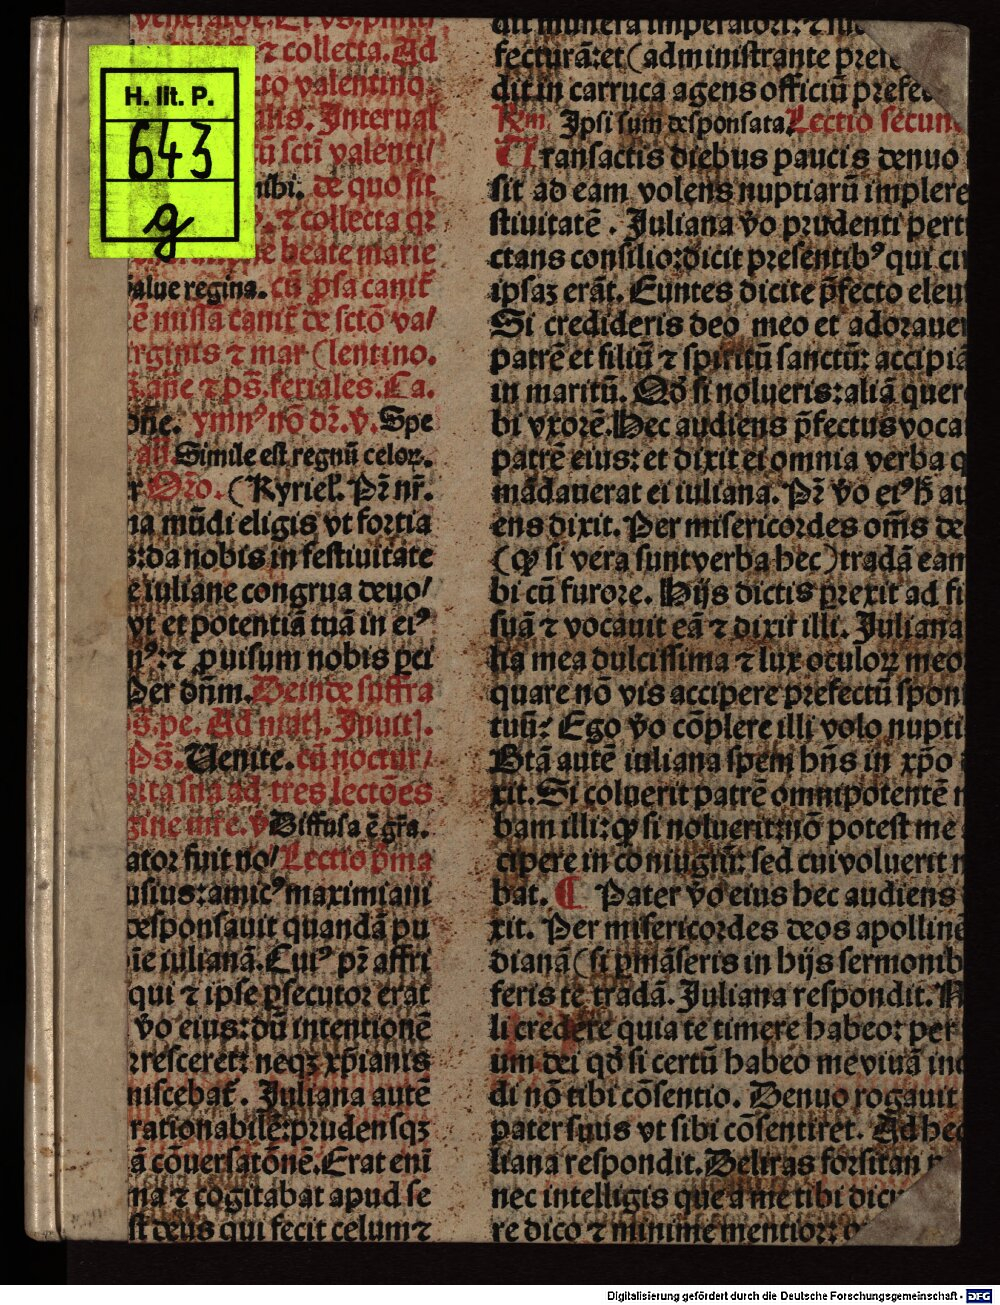 H. lit. P.
643
g
veneratōe. Et ps. primi
⁊ collecta. Ad
cto valentino
ans. Interual
ū scti valenti/
nibi. de quo fit
⁊ collecta qr
re beate marie
salue regina. cū ꝓsa canit᷑
ē missa canit᷑ de sctō va/
rginis ⁊ mar (lentino.
añe ⁊ ps̄. feriales. Ca.
one. ymnꝰ nō dr̄. v̄. Spe
all Simile est regnū celoꝝ.
Oro. (Kyriel. Pr̄ nr̄.
na mūdi eligis vt fortia
s: da nobis in festiuitate
e iuliane congrua deuo/
vt et potentiā tuā in eiꝰ
nꝰ: ⁊ ꝓuisum nobis ꝑci
Per dn̄m. Deinde suffra
ps̄. pe. Ad mat᷑. Inuit᷑.
Ps̄. Uenite. cū noctur/
orta scīa ad tres lectōes
gine infr̄e. v̄ Diffusa ē gr̄a.
ator fuit no/ Lectio p̄ma
usius: amicꝰ maximiani
desponsauit quandā pu
ie iulianā. Cuiꝰ pr̄ affri
qui ⁊ ipse ꝑsecutor erat
v̄o eius: dū intentionē
rresceret: neqꝫ xp̄ianis
miscebat᷑. Juliana autē
rationabile: prudensqꝫ
ā cōuersatōnē. Erat enī
ma ⁊ cogitabat apud se
st deus qui fecit celum ⁊
dit munera imperatori: ⁊
fecturā: et (administrante prefe
dit in carruca agens officiū prefec
Rm. Ipsi sum desponsata. Lectio secun
Transactis diebus paucis denuo
sit ad eam volens nuptiarū implere
stiuitatē. Juliana v̄o prudenti pert
ctans consilio: dicit presentibꝰ qui cu
ipsaꝫ erāt. Euntes dicite p̄fecto eleu
Si credideris deo meo et adoraue
patrē et filiū ⁊ spiritū sanctū: accipiā
in maritū. Qd̄ si nolueris: aliā quer
bi vxorē. Hec audiens p̄fectus voca
patrē eius: et dixit ei omnia verba q
mādauerat ei iuliana. Pr̄ v̄o eiꝰ h̄ au
ens dixit. Per misericordes om̄s de
(ꝙ si vera sunt verba hec) tradā eam
bi cū furore. Hijs dictis ꝑrexit ad fi
suā ⁊ vocauit eā ⁊ dixit illi. Juliana
lia mea dulcissima ⁊ lux oculoꝝ meo
quare nō vis accipere prefectū spon
tuū? Ego v̄o cōplere illi volo nupti
Btā autē iuliana spem hn̄s in xp̄o
xit. Si coluerit patrē omnipotentē
bam illi: ꝙ si noluerit: nō potest me
cipere in coniugiū: sed cui voluerit
bat. ¶ Pater v̄o eius hec audiens
xit. Per misericordes deos apollinē
dianā (si ꝑmāseris in hijs sermonib
feris te tradā. Juliana respondit. N
li credere quia te timere habeo: per
um dei qd̄ si certū habeo me viuā inc
di nō tibi cōsentio. Denuo rogauit
pater suus vt sibi cōsentiret. Ad hec
liana respondit. Deliras forsitan
nec intelligis que a me tibi dicu
re dico ⁊ minime mentior:
Digitalisierung gefördert durch die Deutsche Forschungsgemeinschaft - DFG